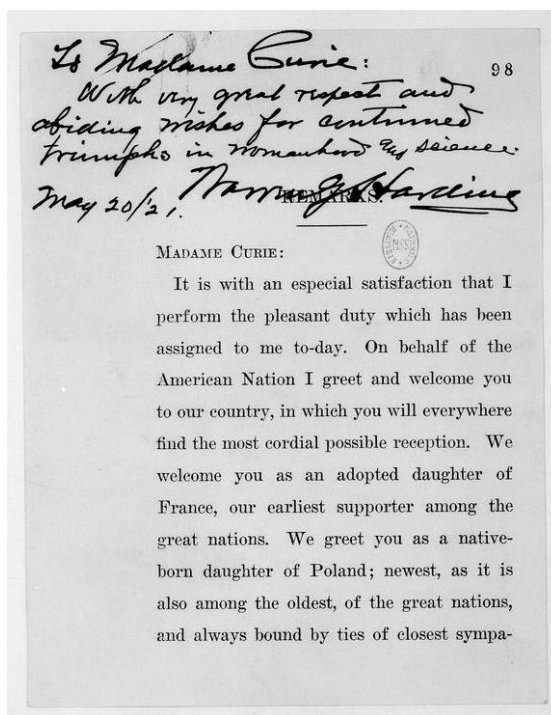 To Madame Curie:
98
With very great respect and
abiding wishes for continued
triumphs in womanhood and science.
May 20/'21. Warren G Harding
REMARKS.
MADAME CURIE:
It is with an especial satisfaction that I
perform the pleasant duty which has been
assigned to me to-day. On behalf of the
American Nation I greet and welcome you
to our country, in which you will everywhere
find the most cordial possible reception. We
welcome you as an adopted daughter of
France, our earliest supporter among the
great nations. We greet you as a native-
born daughter of Poland; newest, as it is
also among the oldest, of the great nations,
and always bound by ties of closest sympa-